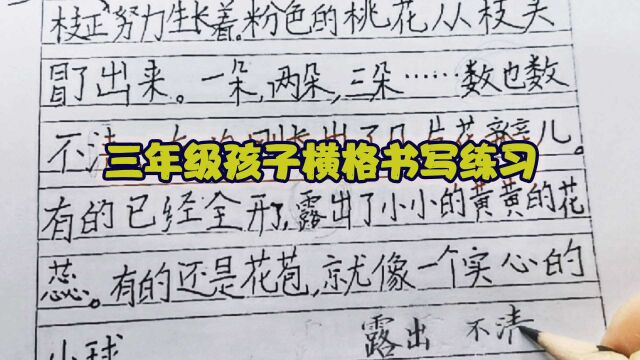 枝正努力生长着。粉色的桃花从枝头
冒了出来。一朵,两朵,三朵……数也数
不清
出了几片花瓣儿。
三年级孩子横格书写练习
有的已经全开了,露出了小小的黄黄的花
蕊。有的还是花苞,就像一个实心的
小球
露出 不清